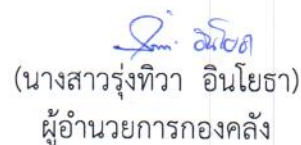 (นางสาวรุ่งทิวา อินโยธา)
ผู้อำนวยการกองคลัง